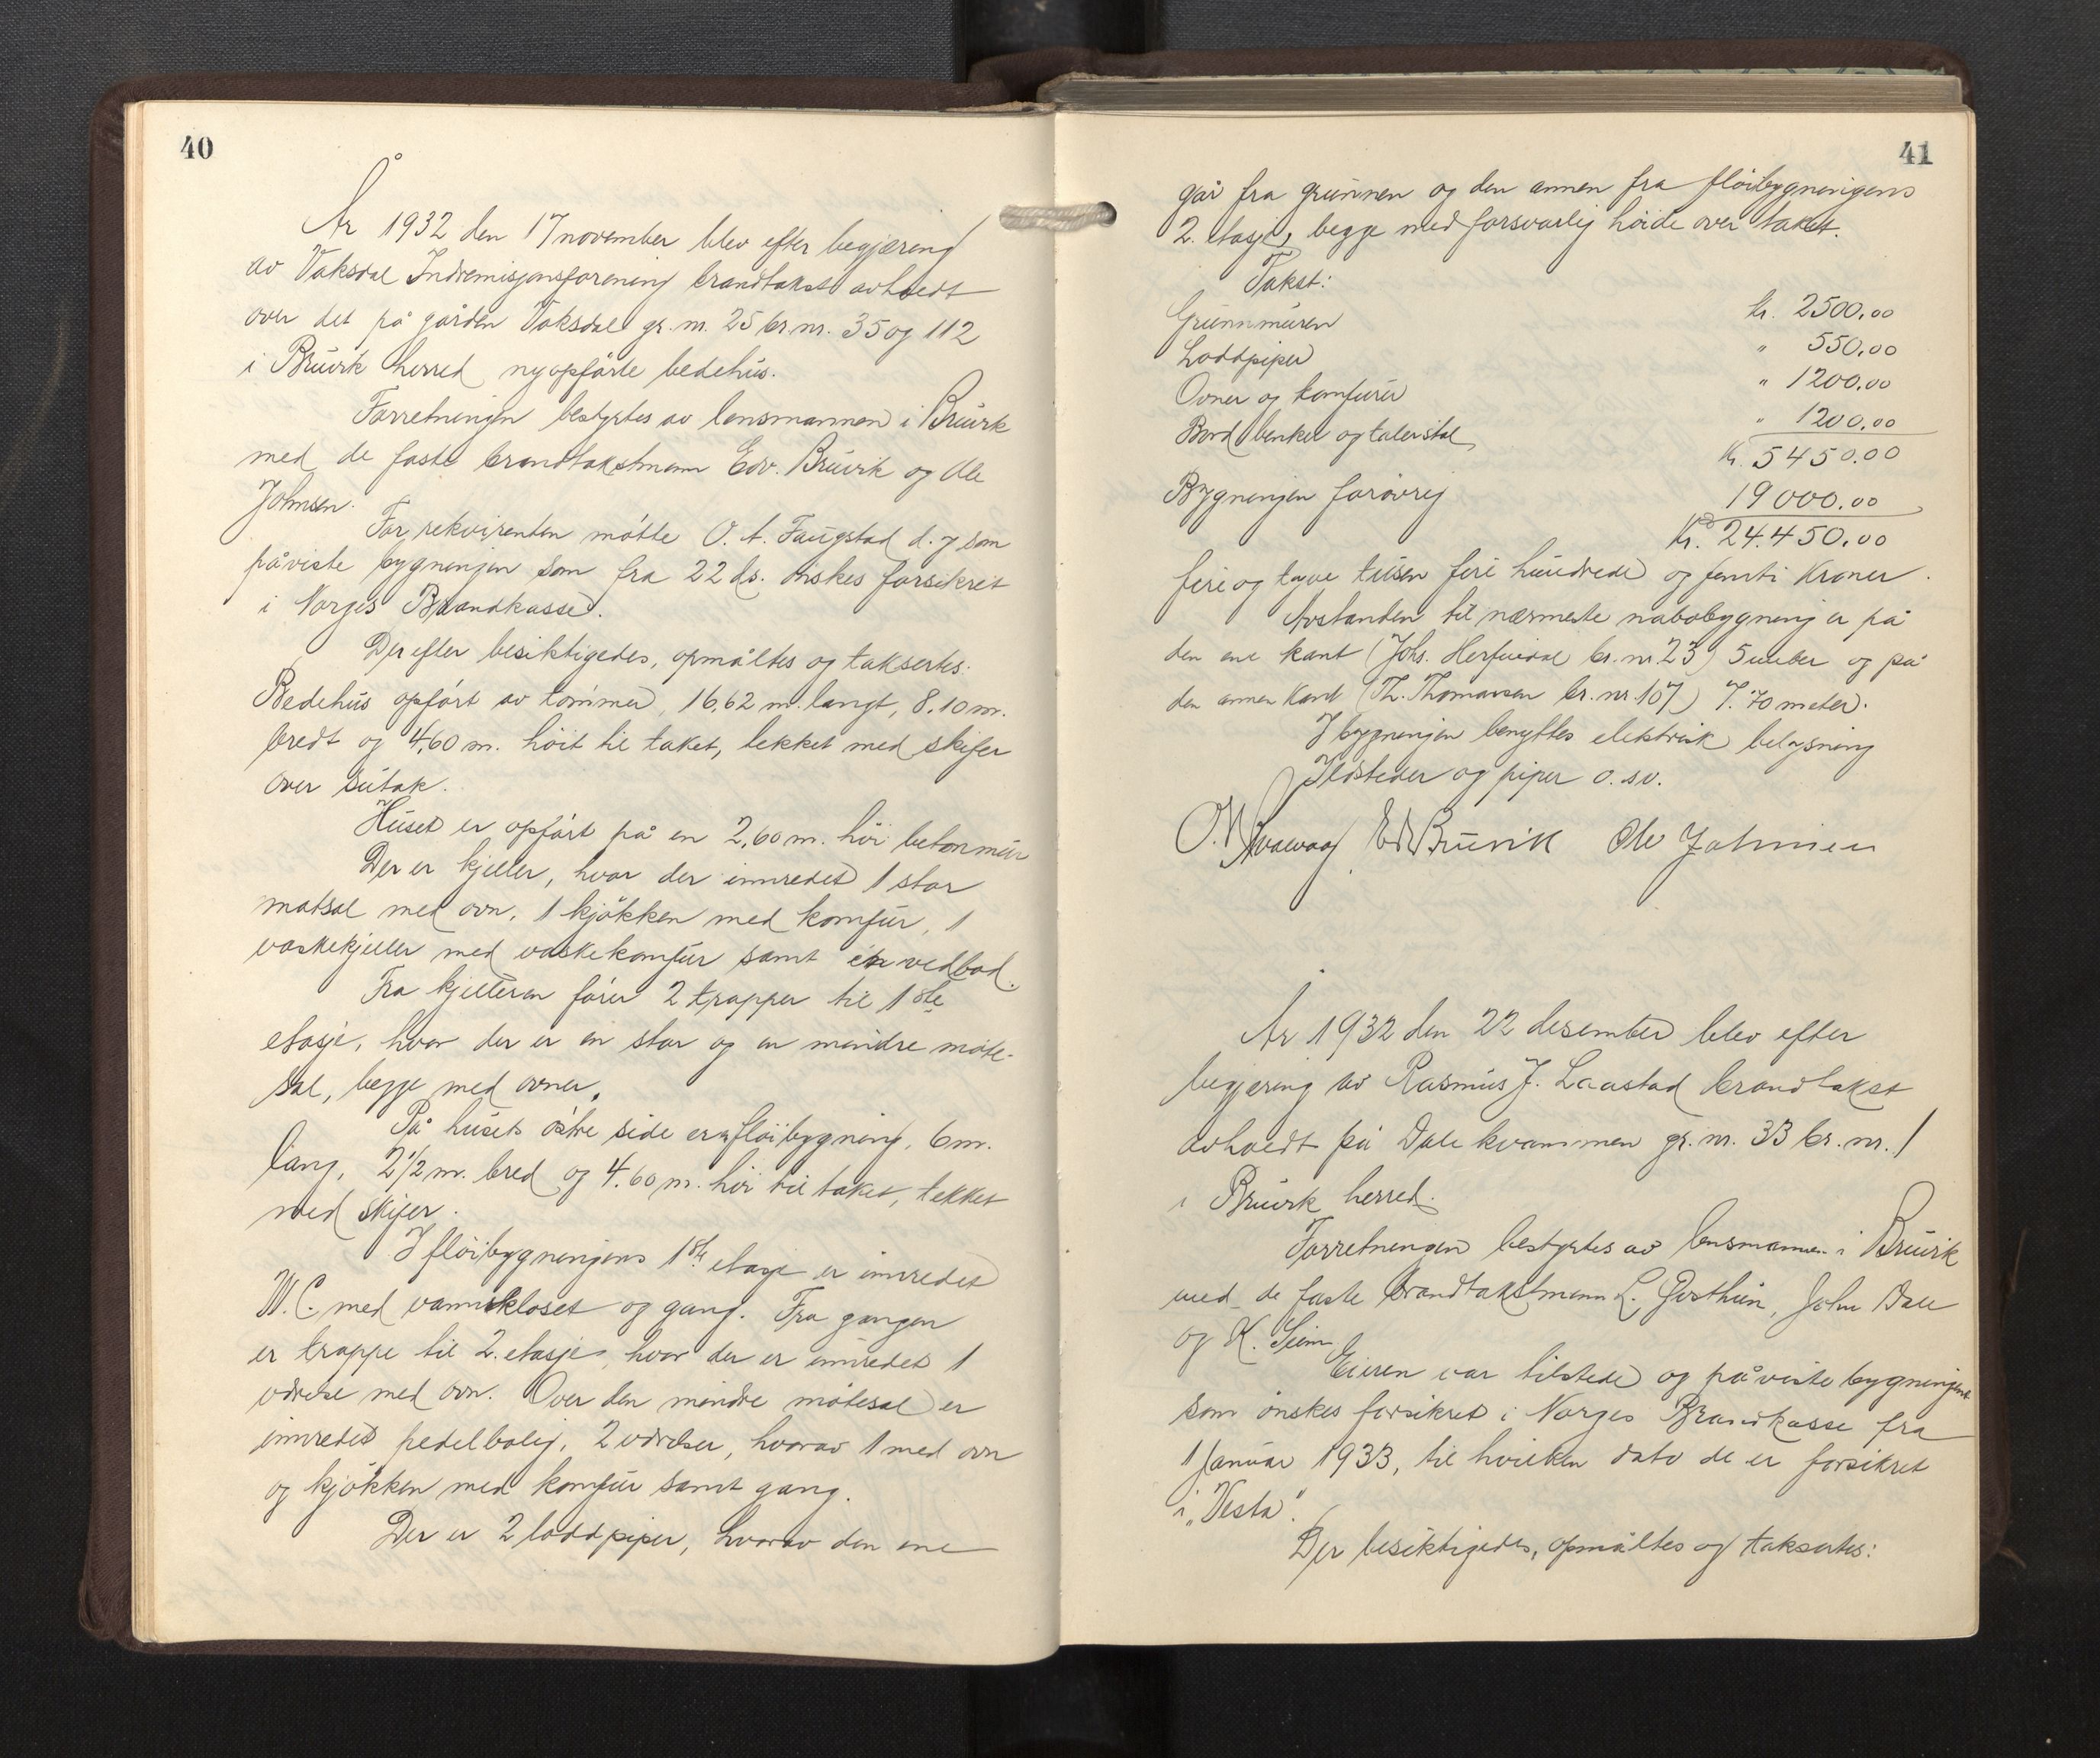 40
År 1932 den 17 november blev efter begjæring
av Vaksdal Indremisjonsforening brandtakst avholdt
over det på gården Vaksdal gr. nr. 25 br. nr. 35 og 112
i Bruvik herred nyopførte bedehus.
Forretningen bestyrtes av lensmannen i Bruvik
med de faste brandtakstmenn Edv. Bruvik og Ole
Johnsen.
For rekvirenten møtte O. A. Faugstad d. y som
påviste bygningen som fra 22 ds. ønskes forsikret
i Norges Brandkasse.
Derefter besiktigedes, opmåltes og taksertes:
Bedehus opført av tømmer, 16,62 m. langt, 8,10 m.
bredt og 4,60 m. höit til taket, tekket med skifer
over sutak.
Huset er opført på en 2,60 m. höi betonmur
Der er kjeller, hvor der innredet 1 stor
matsal med ovn, 1 kjökken med komfur, 1
vaskekjeller med vaskekomfur samt en vedbod.
Fra kjelleren förer 2 trapper til 1ste
etasje, hvor der er en stor og en mindre möte-
sal, begge med ovner.
På husets östre side er en flöibygning, 6 m.
lang, 2 1/2 m. bred og 4.60 m. höi til taket, tekket
med skifer.
I flöibygningens 1ste etasje er innredet
W.C. med vannkloset og gang. Fra gangen
er trappe til 2. etasje, hvor der er innredet 1
værelse med ovn. Over den mindre mötesal er
innredet pedelbolig, 2 værelser, hvorav 1 med ovn
og kjökken med komfur samt gang.
Der er 2 loddpiper, hvorav den ene
41
går fra grunnen og den annen fra flöibygningens
2. etasje, begge med forsvarlig höide over taket.
Takst:
Grunnmuren kr. 2500,00
Loddpiper " 550,00
Ovner og komfurer " 1200,00
Bord benker og talerstol " 1200,00
Kr. 5450.00
Bygningen forøvrig 19000,00
Kr. 24.450,00
fire og tyve tusen fire hundrede og femti Kroner.
Avstanden til nærmeste nabobygning er på
den ene kant (Johs. Herfindal br. nr 23) 5 meter og på
den annen kant (Th. Thomassen br. nr. 107) 7.70 meter.
I bygningen benyttes elektrisk belysning
Ildsteder og piper o. sv.
Ed Bruvik Ole Johnsen
År 1932 den 22 desember blev efter
begjæring av Rasmus J. Laastad brandtakst
avholdt på Dalekvammen gr. nr. 33 br. nr. 1
i Bruvik herred.
Forretningen bestyrtes av lensmannen i Bruvik
med de faste brandtakstmenn L. Gjesthun, John Dale
og K. Seim
Eieren var tilstede og påviste bygningene
som ønskes forsikret i Norges Brandkasse fra
1 Januar 1933, til hvilken dato de er forsikret
i „Vesta".
Der besiktigedes, opmåltes og taksertes: